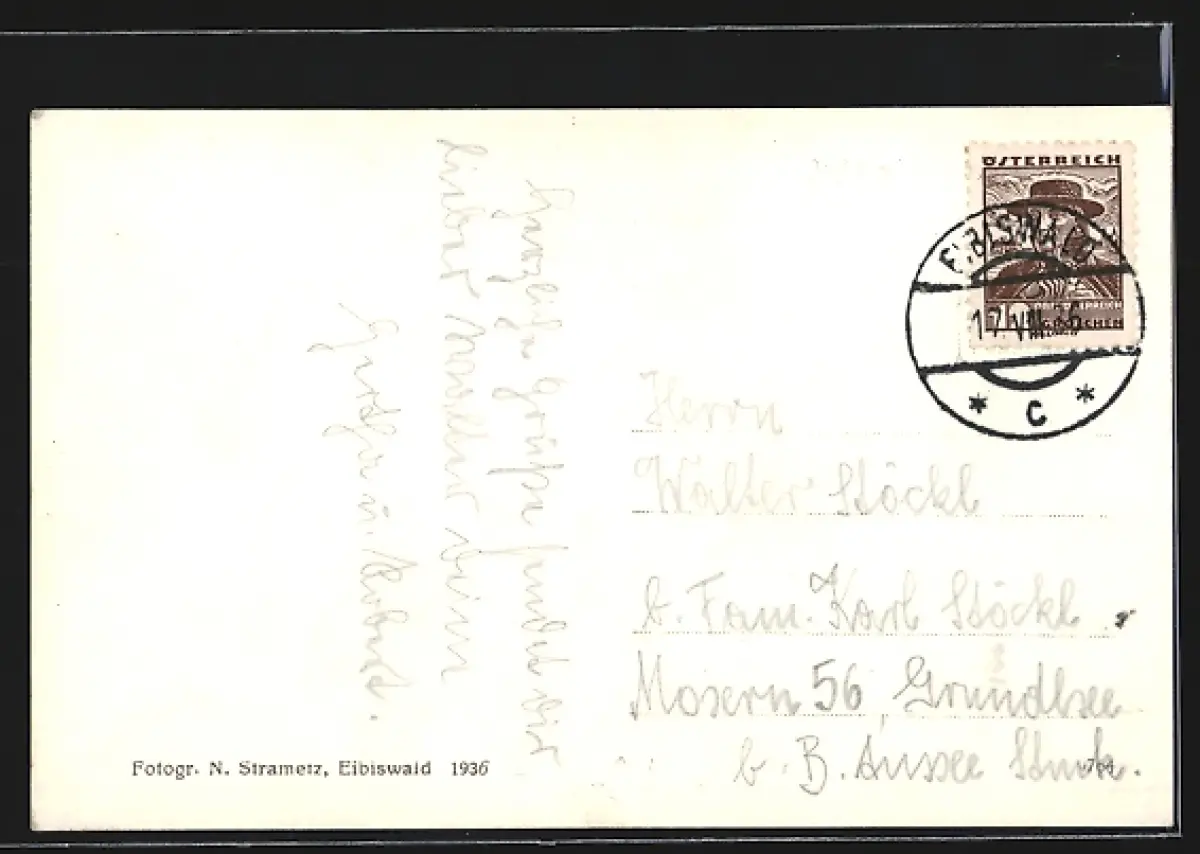 Herzliche Grüße sendet dir
lieber Walter dein
u. Robert.
ÖSTERREICH
EIBISWALD
17.VIII.36
GROSCHEN
* C *
Herrn
Walter Stöckl
b. Fam. Karl Stöckl
Mosern 56, Grundlsee
b. B. Aussee
Fotogr. N. Strametz, Eibiswald 1936